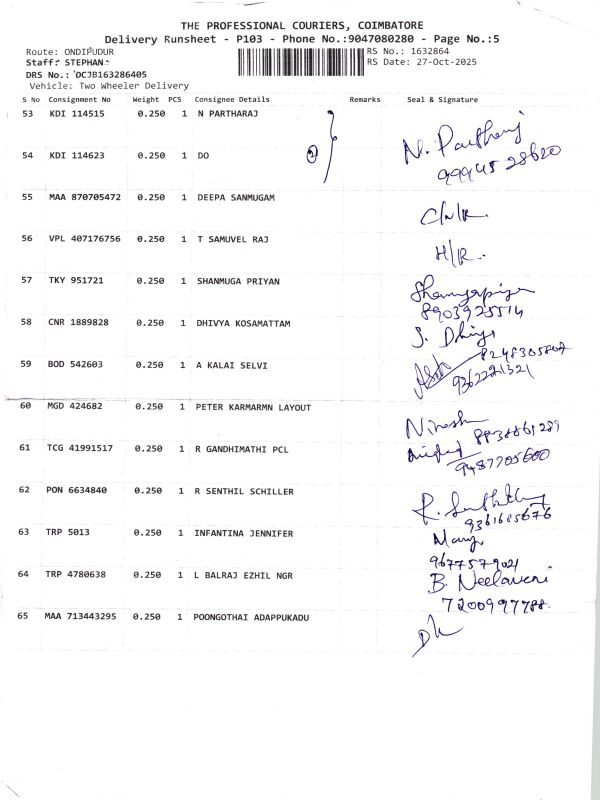 THE PROFESSIONAL COURIERS, COIMBATORE
Delivery Runsheet - P103 - Phone No.:9047080280 - Page No.:5
Route: ONDIPUDUR RS No.: 1632864
Staff: STEPHAN RS Date: 27-Oct-2025
DRS No.: DCJB163286405
Vehicle: Two Wheeler Delivery
S No Consignment No Weight PCS Consignee Details Remarks Seal & Signature
53 KDI 114515 0.250 1 N PARTHARAJ
N. Partharaj
54 KDI 114623 0.250 1 DO 2
99945 28620
55 MAA 870705472 0.250 1 DEEPA SANMUGAM
56 VPL 407176756 0.250 1 T SAMUVEL RAJ
H/R.
57 TKY 951721 0.250 1 SHANMUGA PRIYAN
8903925514
58 CNR 1889828 0.250 1 DHIVYA KOSAMATTAM
59 BOD 542603 0.250 1 A KALAI SELVI
9362221321
60 MGD 424682 0.250 1 PETER KARMARMN LAYOUT
61 TCG 41991517 0.250 1 R GANDHIMATHI PCL
9487705600
62 PON 6634840 0.250 1 R SENTHIL SCHILLER
9361685676
63 TRP 5013 0.250 1 INFANTINA JENNIFER
Mary
9677579021
64 TRP 4780638 0.250 1 L BALRAJ EZHIL NGR
B. Neelaveni
7200997788
65 MAA 713443295 0.250 1 POONGOTHAI ADAPPUKADU